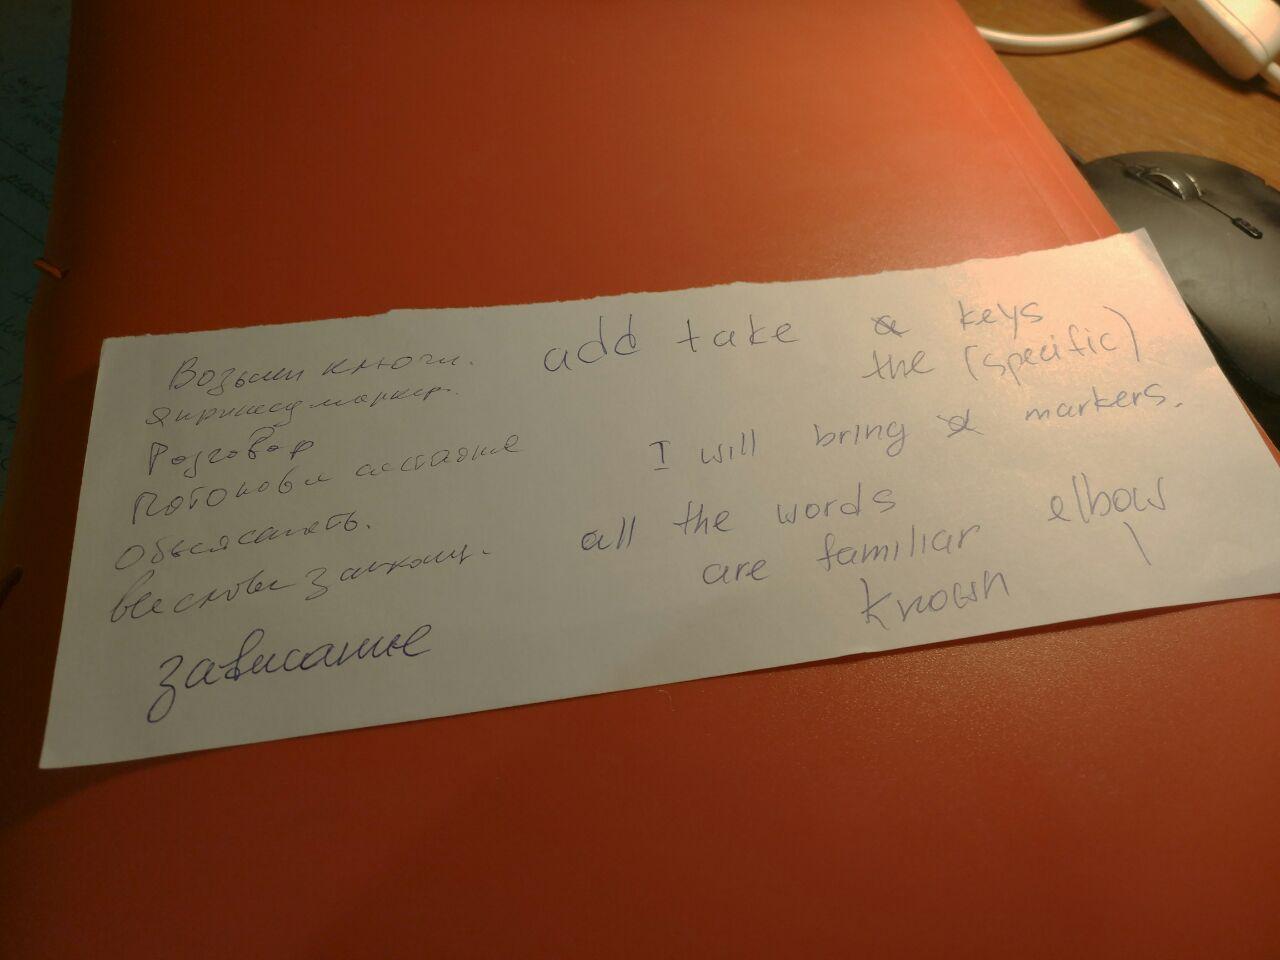 Возьми ключи.
Я принесу маркер.
Разговор
Потоковое
Объяснять.
Все слова знакомы.
зависание
add take keys
the (specific)
I will bring markers.
all the words
are familiar elbow
known \